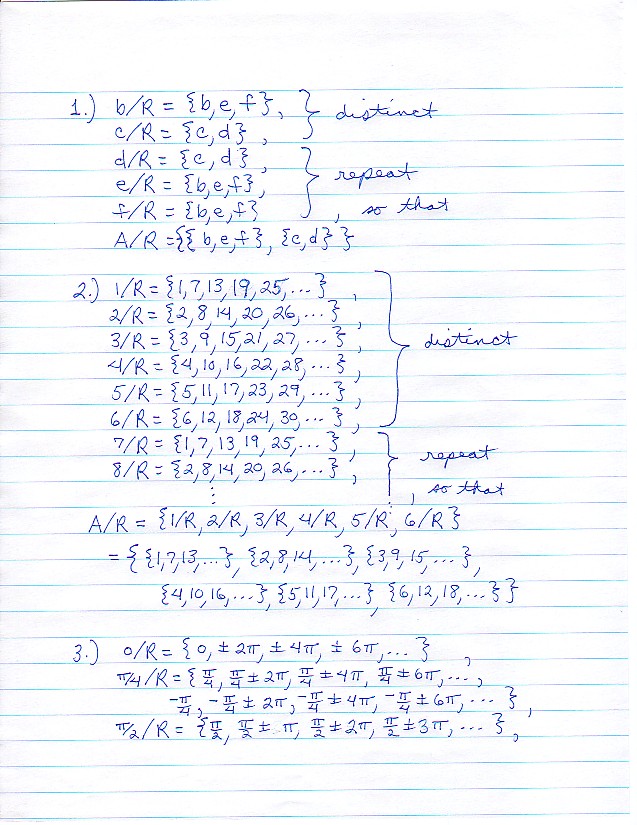 1.) b/R = {b,e,f}, } distinct
c/R = {c,d} ,
d/R = {c,d} ,
e/R = {b,e,f}, } repeat
f/R = {b,e,f} , so that
A/R = {{b,e,f}, {c,d}}
2.) 1/R = {1,7,13,19,25,...} ,
2/R = {2,8,14,20,26,...} ,
3/R = {3,9,15,21,27,...} , } distinct
4/R = {4,10,16,22,28,...} ,
5/R = {5,11,17,23,29,...} ,
6/R = {6,12,18,24,30,...} ,
7/R = {1,7,13,19,25,...} , } repeat
8/R = {2,8,14,20,26,...} ,
⋮ ⋮ , so that
A/R = {1/R, 2/R, 3/R, 4/R, 5/R, 6/R}
= { {1,7,13,...}, {2,8,14,...}, {3,9,15,...},
{4,10,16,...}, {5,11,17,...}, {6,12,18,...} }
3.) 0/R = {0, ±2π, ±4π, ±6π,...} ,
π/4/R = {π/4, π/4 ± 2π, π/4 ± 4π, π/4 ± 6π,...,
-π/4, -π/4 ± 2π, -π/4 ± 4π, -π/4 ± 6π,...} ,
π/2/R = {π/2, π/2 ± π, π/2 ± 2π, π/2 ± 3π,...} ,